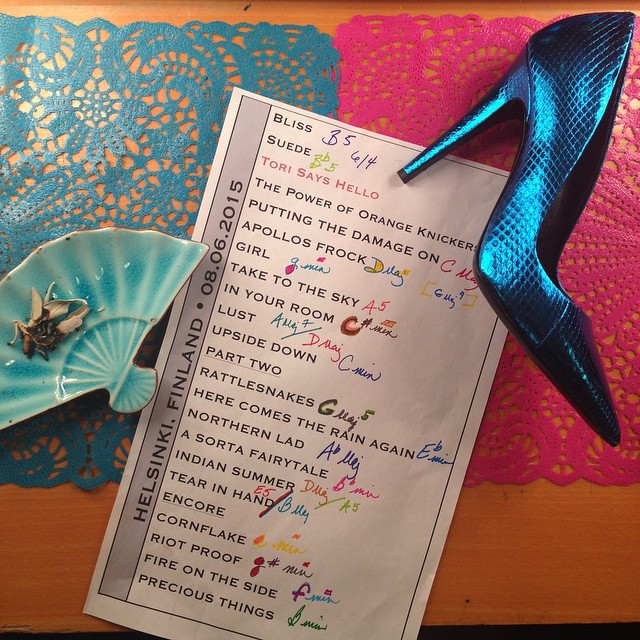 HELSINKI, FINLAND • 08.06.2015
BLISS B5 6/4
SUEDE Bb5
TORI SAYS HELLO
THE POWER OF ORANGE KNICKERS
PUTTING THE DAMAGE ON C Maj
APOLLOS FROCK D Maj [G Maj 9]
GIRL g min
TAKE TO THE SKY A5
IN YOUR ROOM C# min
LUST A Maj 7
UPSIDE DOWN D Maj C min
PART TWO
RATTLESNAKES G Maj 5
HERE COMES THE RAIN AGAIN Eb min
NORTHERN LAD Ab Maj
A SORTA FAIRYTALE
INDIAN SUMMER D Maj / A5 Bb min
TEAR IN HAND E5 / B Maj
ENCORE
CORNFLAKE a min
RIOT PROOF g# min
FIRE ON THE SIDE f min
PRECIOUS THINGS B min